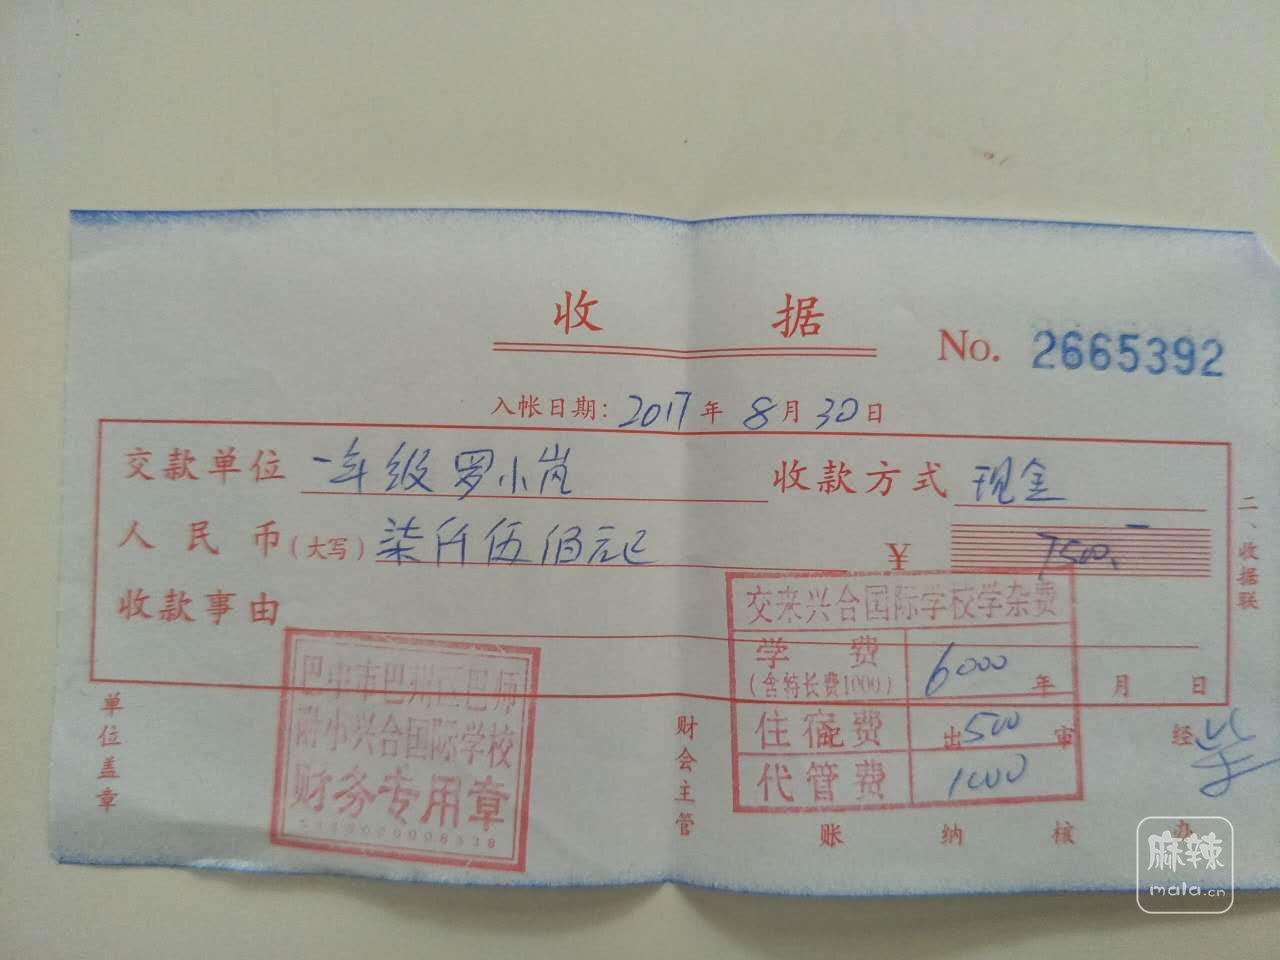 收 据
No. 2665392
入帐日期：2017年 8月 30日
交款单位 一年级罗小岚 收款方式 现金
人民币（大写）柒仟伍佰元 ￥ 7500
收款事由
二、收据联
交来兴合国际学校学杂费
学费 6000
（含特长费1000）
年 月 日
住宿费 500
代管费 1000
巴中市巴州区巴师
附小兴合国际学校
财务专用章
单位盖章
财会主管
账
出纳
审核
经办
麻辣
mala.cn